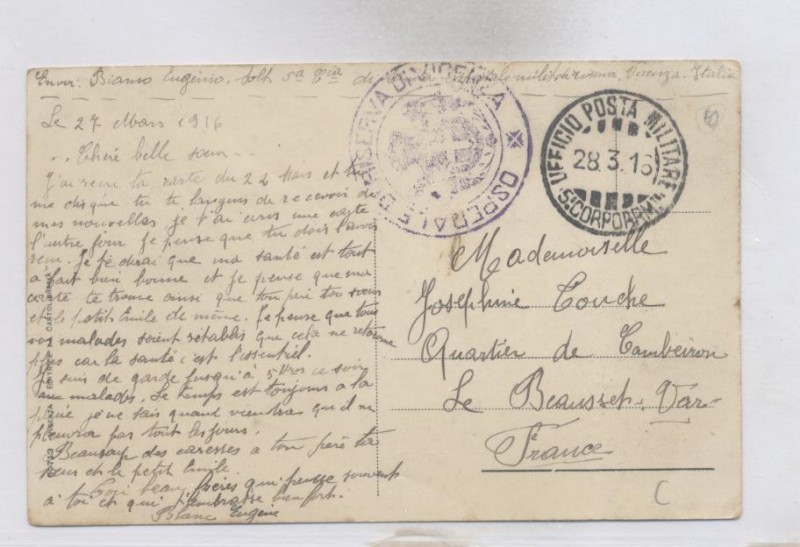 Envoi: Bianco Eugenio, Solt. 5ª Cia Vicenza - Italia
Le 27 Mars 1916
Chère belle sœur
J'ai reçu ta carte du 22 Mars et tu
me dis que tu te languis de recevoir de
mes nouvelles je t'ai écris une carte
l'autre jour je pense que tu dois l'avoir
reçu. Je te dirai que ma santé est tout
a fait bien bonne et je pense que ma
carte te trouve ainsi que ton père ta sœur
et le petit Emile de même. Je pense que tous
vos malades soient rétablis que cela ne retourne
plus car la santé c'est l'essentiel.
Je suis de garde jusqu'à 5 hres ce soir
aux malades. Le temps est toujours a la
pluie je ne sais quand viendra qu'il ne
pleuvra pas tout les jours.
Beaucoup des caresses a ton père ta
sœur et le petit Emile.
Ton beau frère qui pense souvent
a toi et qui t'embrasse bien fort.
Blanc Eugène
OSPEDALE DI RISERVA DI VICENZA
UFFICIO POSTA MILITARE
28.3.16
5. CORPO ARM
Mademoiselle
Joséphine Couche
Quartier de Cambeiron
Le Beausset. Var-
France
C